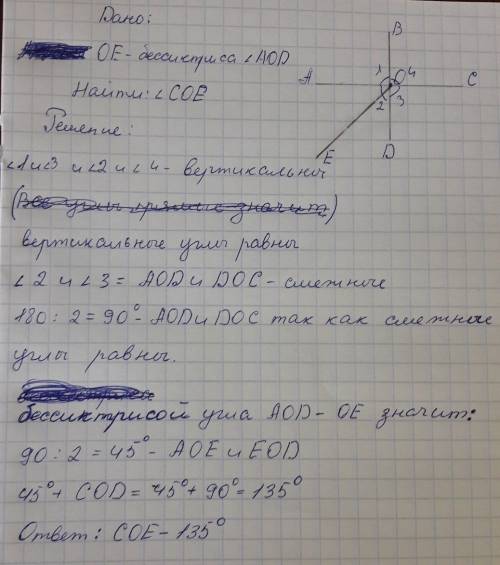 Дано:
ОЕ - бессиктриса ∠AOD
Найти: ∠COE
Решение:
B
A
1
O
4
C
2
3
D
E
∠1 и ∠3 и ∠2 и ∠4 - вертикальны
(Все углы прямые значит)
вертикальные углы равны
∠2 и ∠3 = AOD и DOC - смежные
180 : 2 = 90° - AOD и DOC так как смежные
углы равны.
бессиктрисой угла AOD - OE значит:
90 : 2 = 45° - AOE и EOD
45° + COD = 45° + 90° = 135°
Ответ: COE - 135°